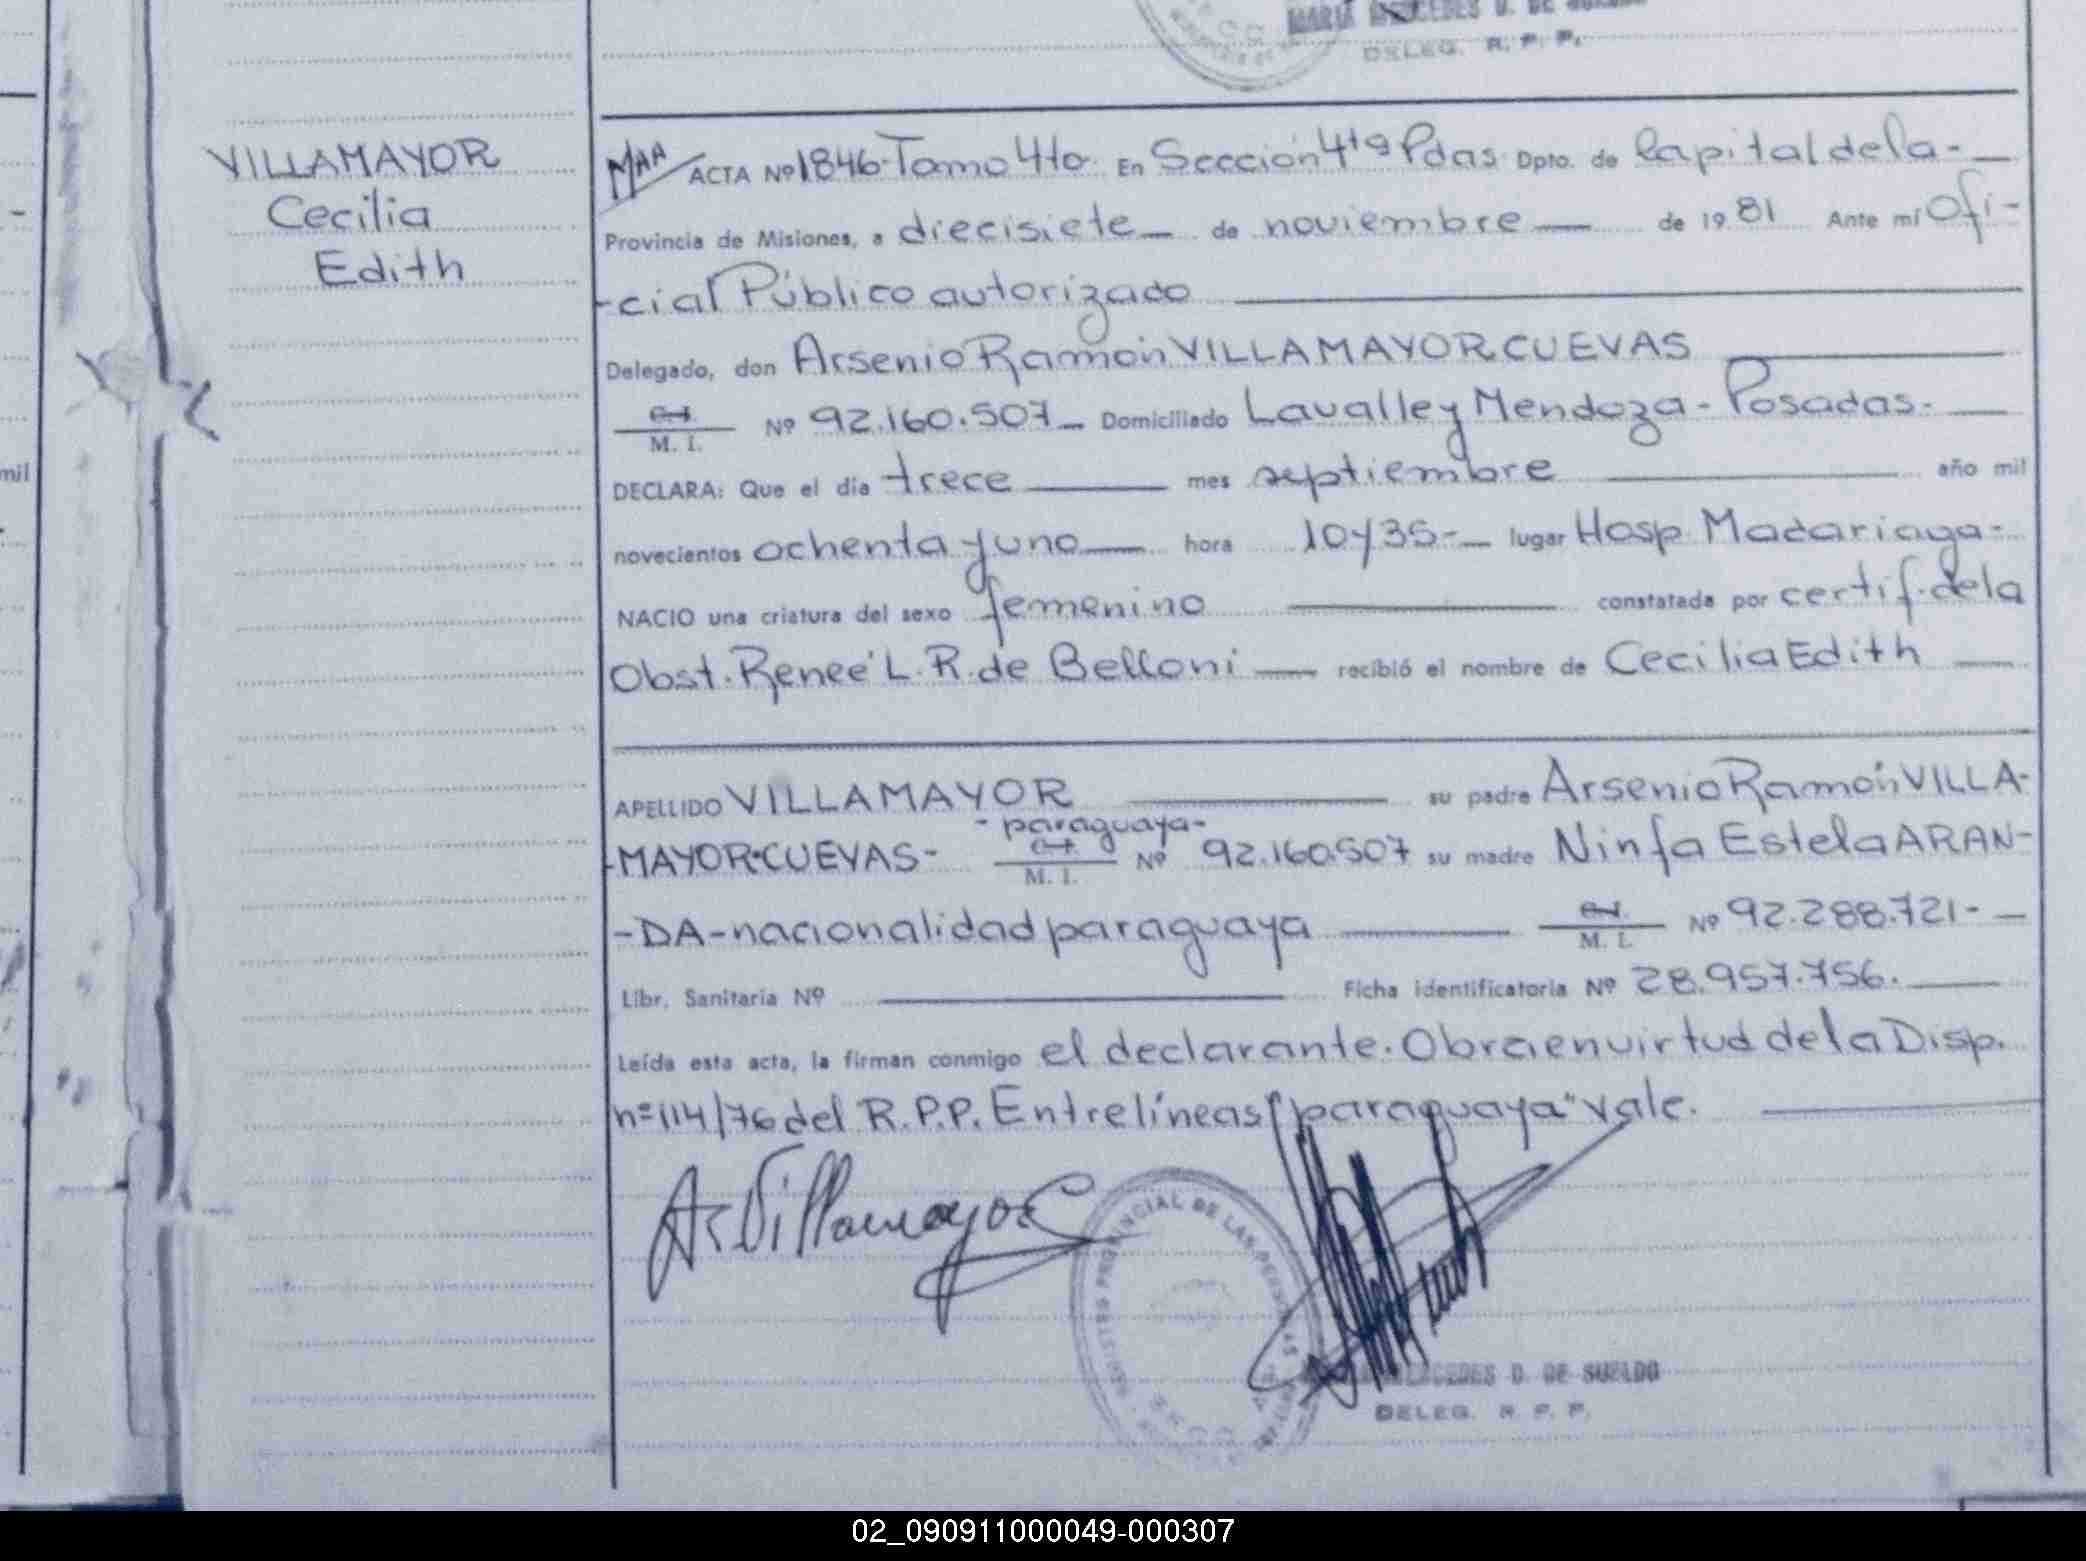 DELEG. R. P. P.
VILLAMAYOR
Cecilia
Edith
MAA ACTA Nº 1846-Tomo 4to. En Sección 4ta Pdas. Dpto. de Capital de la-
Provincia de Misiones, a diecisiete de noviembre de 1981 Ante mí Ofi-
-cial Público autorizado
Delegado, don Arsenio Ramón VILLAMAYOR CUEVAS
C.I. M. I. Nº 92.160.507 Domiciliado Lavalle y Mendoza - Posadas.
DECLARA: Que el día trece mes septiembre año mil
novecientos ochenta y uno hora 10 y 35- lugar Hosp. Madariaga-
NACIO una criatura del sexo femenino constatada por certif. de la
Obst. Reneé L. R. de Belloni recibió el nombre de Cecilia Edith
APELLIDO VILLAMAYOR su padre Arsenio Ramón VILLA-
-paraguaya-
-MAYOR-CUEVAS- C.I. M. I. Nº 92.160.507 su madre Ninfa Estela ARAN-
-DA-nacionalidad paraguaya C.I. M. I. Nº 92.288.721-
Libr. Sanitaria Nº Ficha identificatoria Nº 28.957.756.
Leída esta acta, la firman conmigo el declarante. Obra en virtud de la Disp.
nº 114/76 del R.P.P. Entrelíneas "paraguaya" vale.
REGISTRO PROVINCIAL DE LAS PERSONAS
MERCEDES D. DE SUELDO
DELEG. R. P. P.
mil
02_090911000049-000307